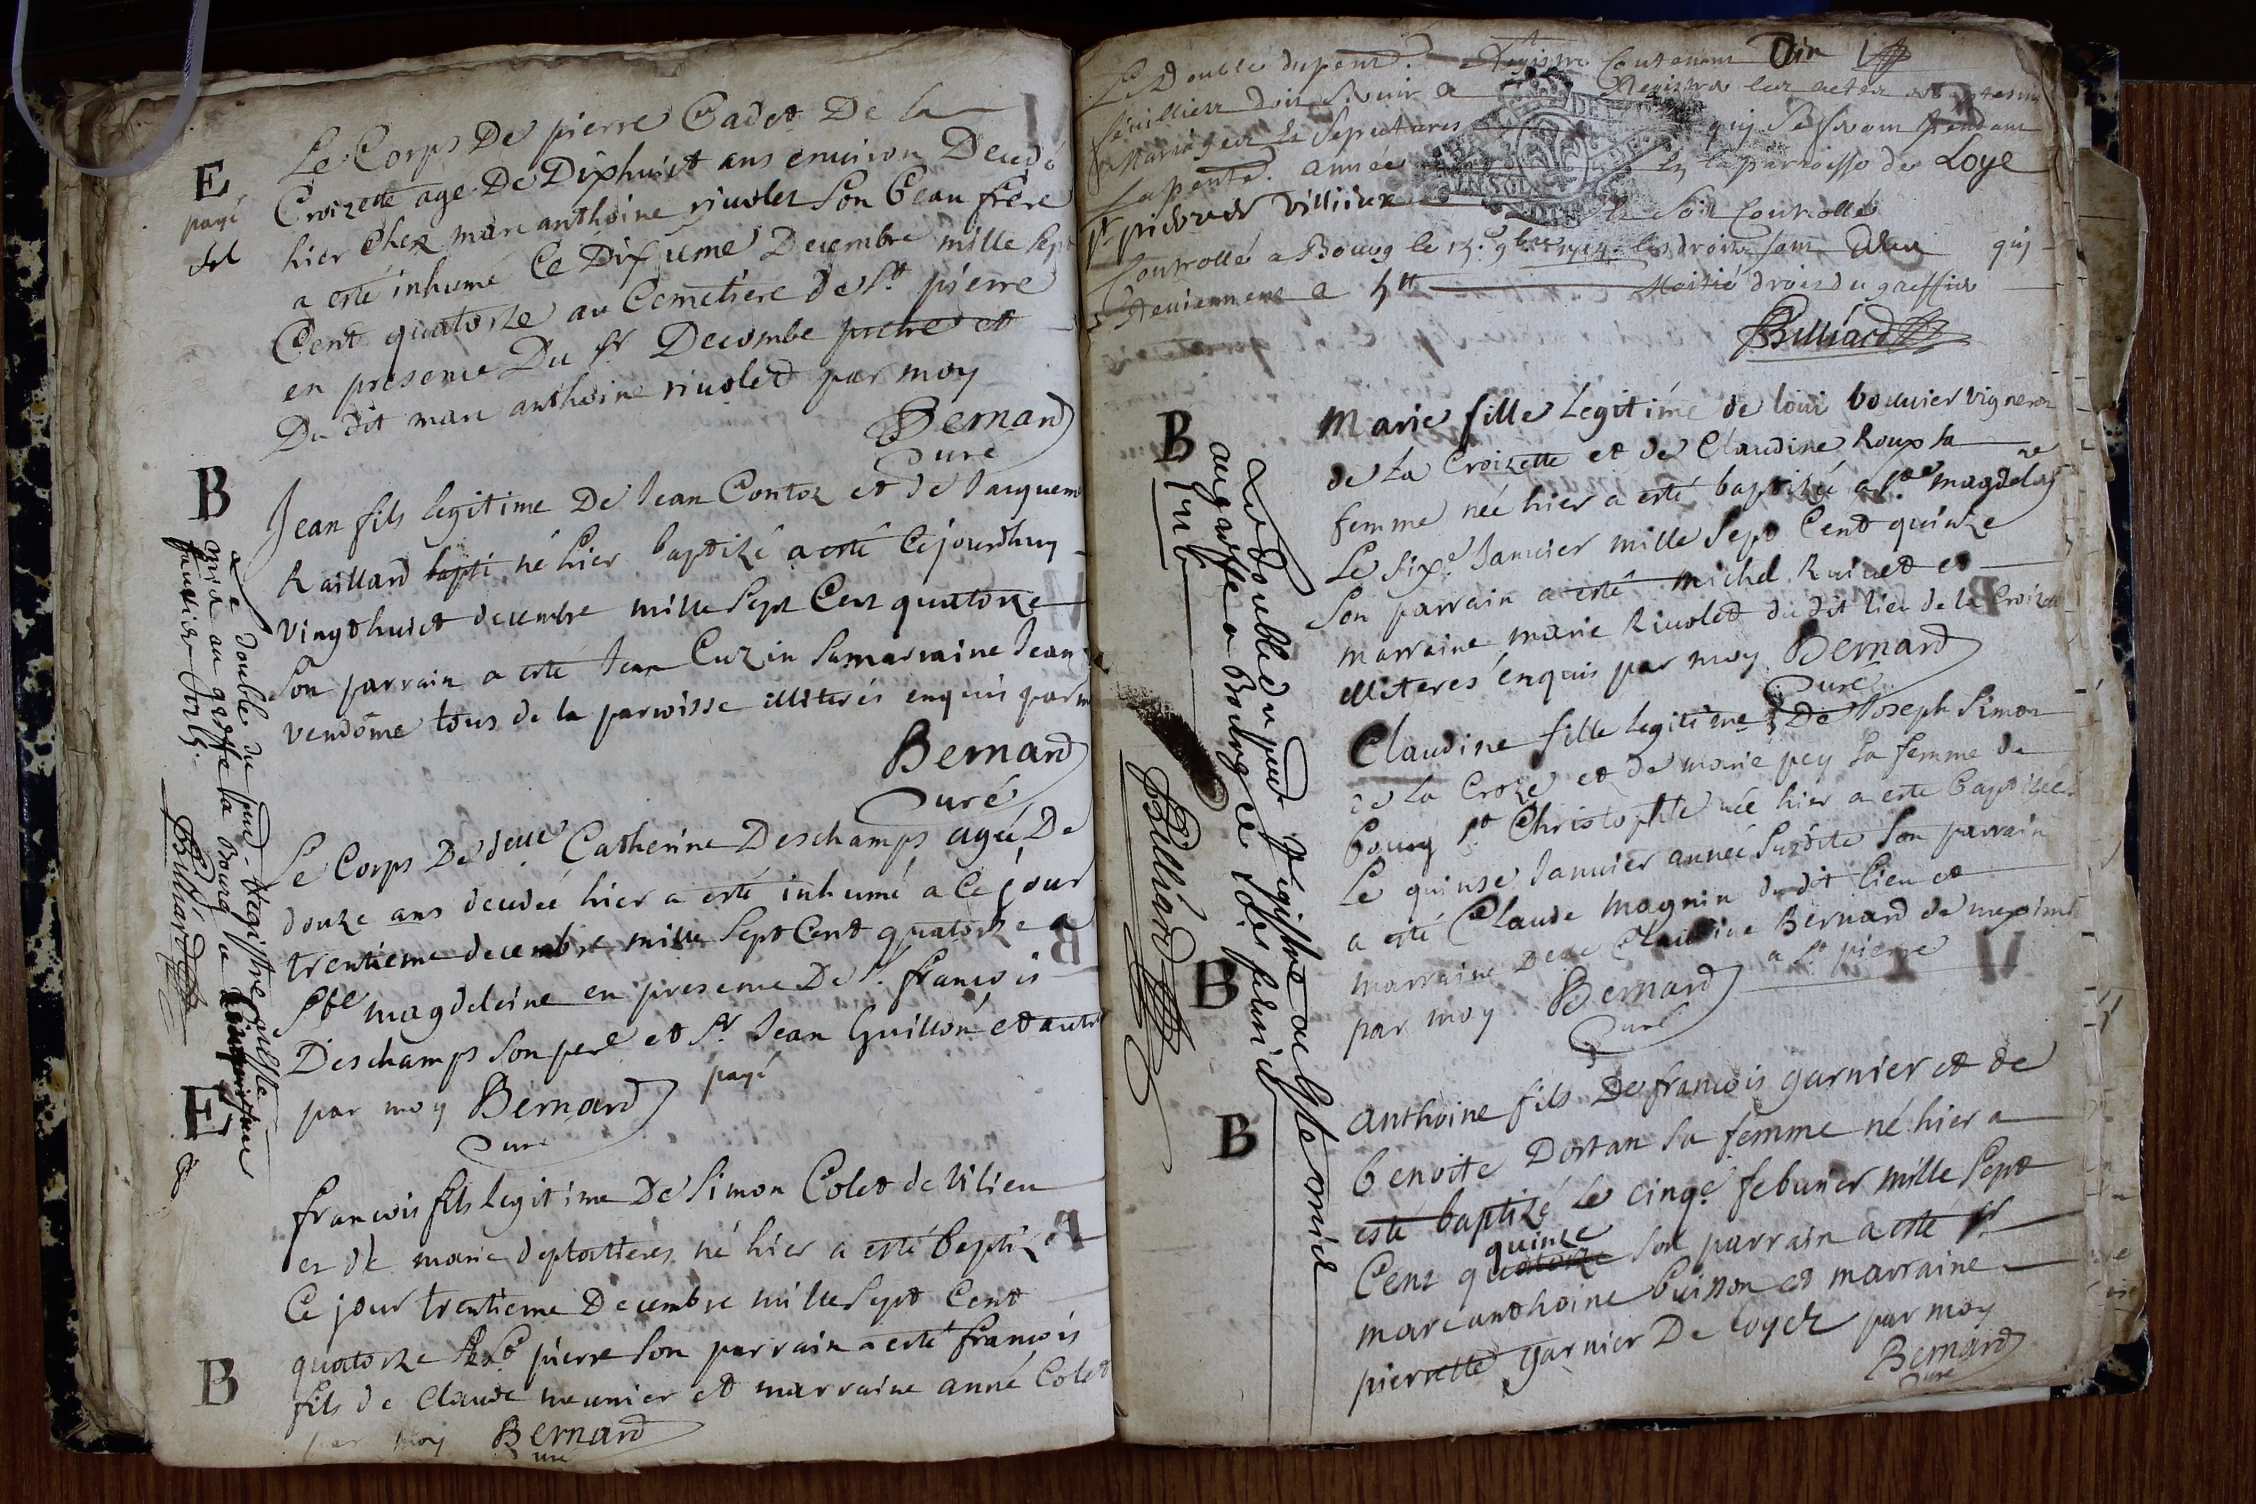 Le Corps De pierre Cadot De la
Croizette age De Dixhuict ans environ Decedé
hier chez marc anthoine rivolet son beau frere
a esté inhumé Ce Dixieme Decembre mille sept
Cent quatorze au Cemetiere de St pierre
en presence Du Sr Decombe pretre et
Du dit marc anthoine rivolet par moy
Bernard
Curé
E
payé
B
Jean fils legitime De Jean Contoz et de Jacquem
Raillard bapti né hier baptizé a esté Cejourdhuy
vingthuict decembre mille sept Cent quatorze
Son parrain a esté Jean Cuzin sa marraine Jean
vendôme tous de la parroisse illiterés enquis par m
Bernard
Curé
Le double du pnt Registre
mis au greffe
Billiard
Le Corps De delle Catherine Deschamps agée De
douze ans decedée hier a esté inhumé a Ce jour
trentieme decembre mille sept Cent quatorze a
Ste magdeleine en presence De Sr francois
Deschamps son pere et Sr Jean Guillon et autr
par moy Bernard payé
Curé
E
francois fils legitime De Simon Colet de Vilieu
et de marie deplatieres né hier a esté baptizé
Ce jour trentieme Decembre mille sept Cent
quatorze a St pierre son parrain a esté francois
fils de Claude meunier et marraine anne Colet
par moy Bernard
Curé
B
Le Double du pent. Registre Contenant
feuilliets doit servir a Registrer les actes
Mariages et Sepultures qui se feront pendant
la pente. année en la parroisse de Loye
et soit Controllé
Controllé a Bourg le les droits sont qui
Reviennent a moitié droit du greffier
Billiard
B
Marie fille legitime de loui bouvier vigneron
de la Croizette et de Claudine Roux sa
femme née hier a esté baptizée a Ste magdelne
Le sixe Janvier mille sept Cent quinze
Son parrain a esté michel Ruinet et
marraine marie Rivolet du dit lieu de la Croizet
illiterés enquis par moy Bernard
Curé
Le double du pnt Registre a esté mis
au greffe a Bourg
Billiard
Claudine fille legitime De Joseph Simon
de la Croze et de marie pey sa femme de
bourg St Christophle née hier a esté baptizée
Le quinze Janvier année susdite son parrain
a esté Claude magnin du dit lieu et
marraine Delle Claudine Bernard de meximie
par moy Bernard a St pierre
Curé
B
B
anthoine fils De francois garnier et de
benoite Dortan sa femme né hier a
esté baptizé Le cinqe febvrier mille sept
quinze
Cent quatorze son parrain a esté Sr
marc anthoine buisson et marraine
pierrette garnier De loyes par moy
Bernard
Curé